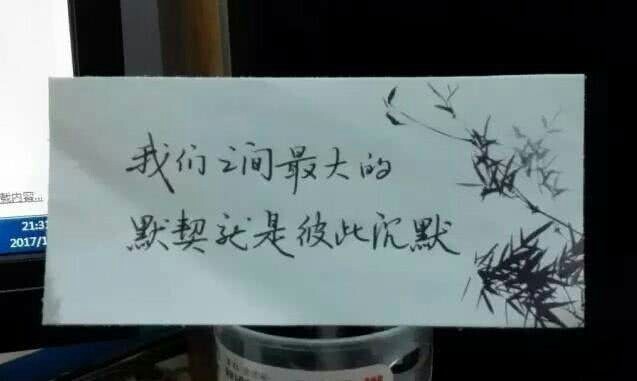 我们之间最大的
默契就是彼此沉默
载内容...
21:3
2017/1